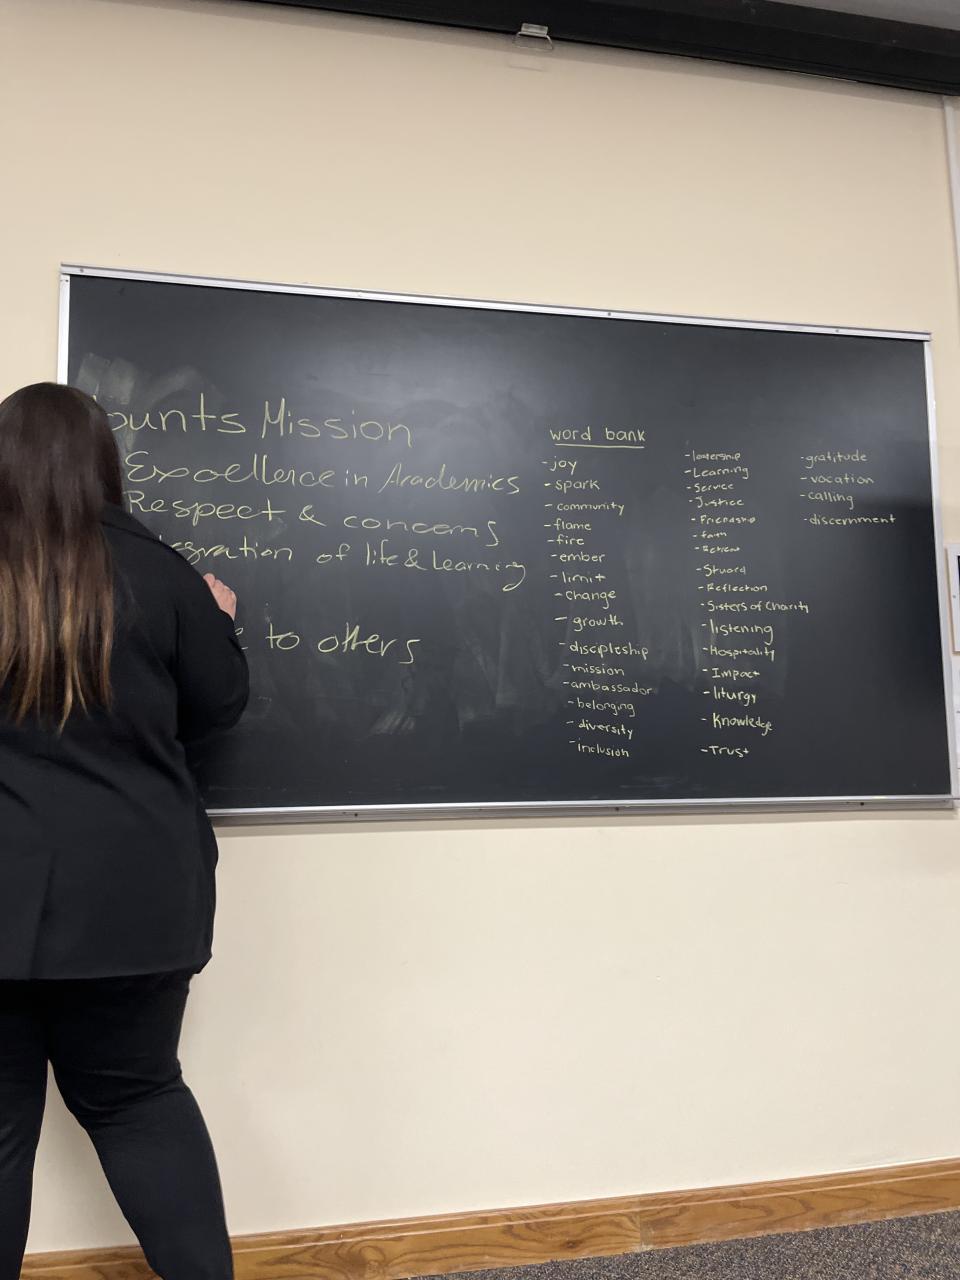 ounts Mission
Excellence in Academics
Respect & concerns
gration of life & Learning
to others
word bank
-joy
-spark
-community
-flame
-fire
-ember
-limit
-change
-growth
-discipleship
-mission
-ambassador
-belonging
-diversity
-inclusion
-leadership
-Learning
-Service
-Justice
-Friendship
-faith
-Reflection
-Sisters of Charity
-listening
-Hospitality
-Impact
-liturgy
-Knowledge
-Trust
-gratitude
-vocation
-calling
-discernment